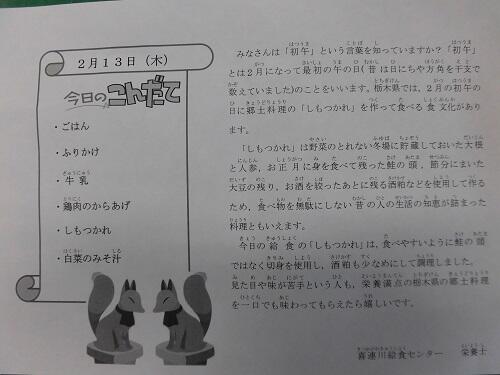 2月13日（木）
今日のこんだて
・ごはん
・ふりかけ
・牛乳
・鶏肉のからあげ
・しもつかれ
・白菜のみそ汁
みなさんは「初午」という言葉を知っていますか？「初午」
とは2月になって最初の午の日(昔は日にちや方角を干支で
数えていました)のことをいいます。栃木県では、2月の初午の
日に郷土料理の「しもつかれ」を作って食べる食文化があり
ます。
「しもつかれ」は野菜のとれない冬場に貯蔵しておいた大根
と人参、お正月に身を食べて残った鮭の頭、節分にまいた
大豆の残り、お酒を絞ったあとに残る酒粕などを使用して作る
ため、食べ物を無駄にしない昔の人の生活の知恵が詰まった
料理ともいえます。
今日の給食の「しもつかれ」は、食べやすいように鮭の頭
ではなく切身を使用し、酒粕も少なめにして調理しました。
見た目や味が苦手という人も、栄養満点の栃木県の郷土料理
を一口でも味わってもらえたら嬉しいです。
喜連川給食センター　栄養士